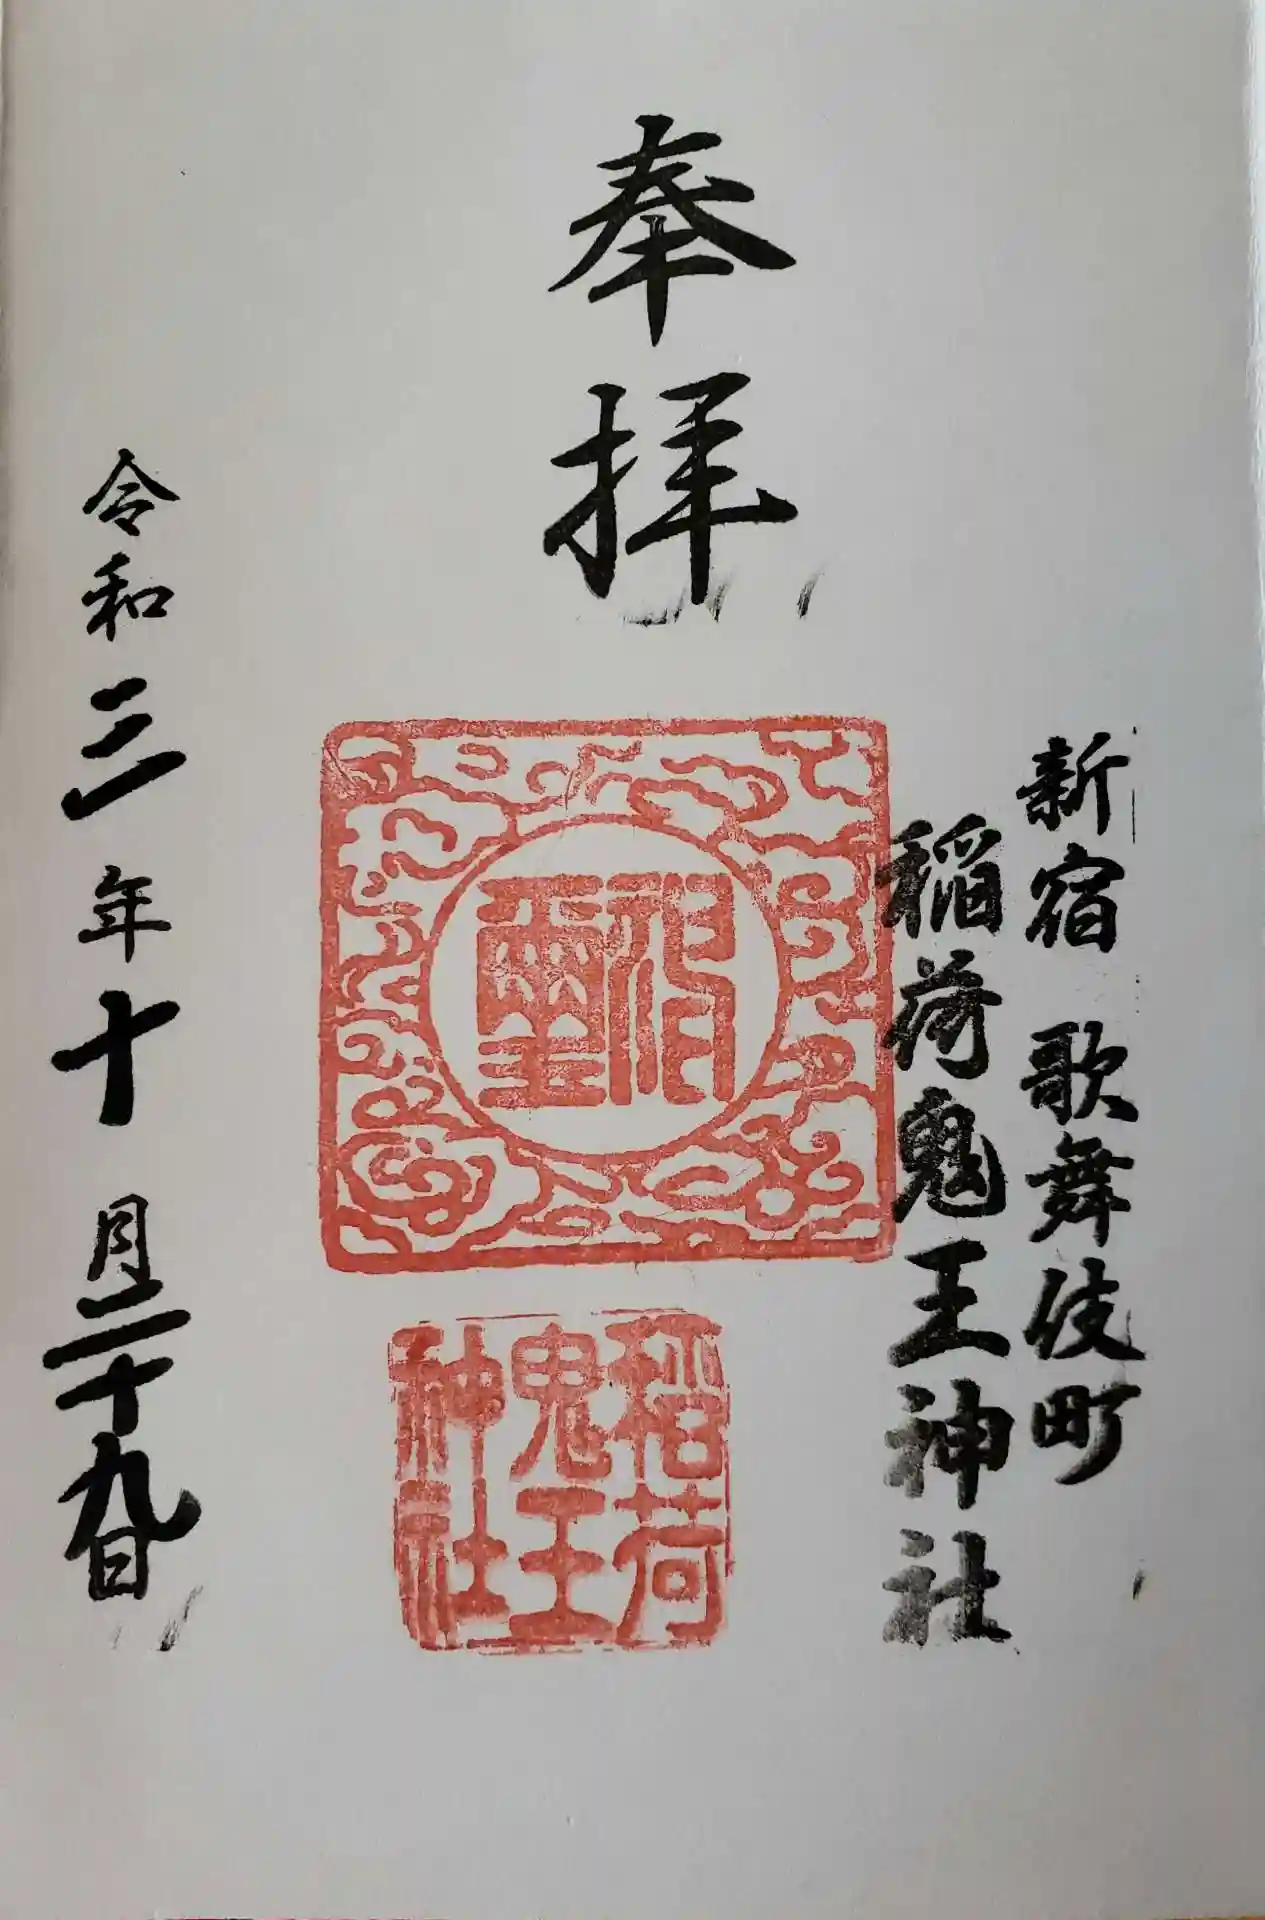 奉拝
新宿 歌舞伎町
稲荷鬼王神社
神璽
稲荷
鬼王
神社
令和三年十月二十九日